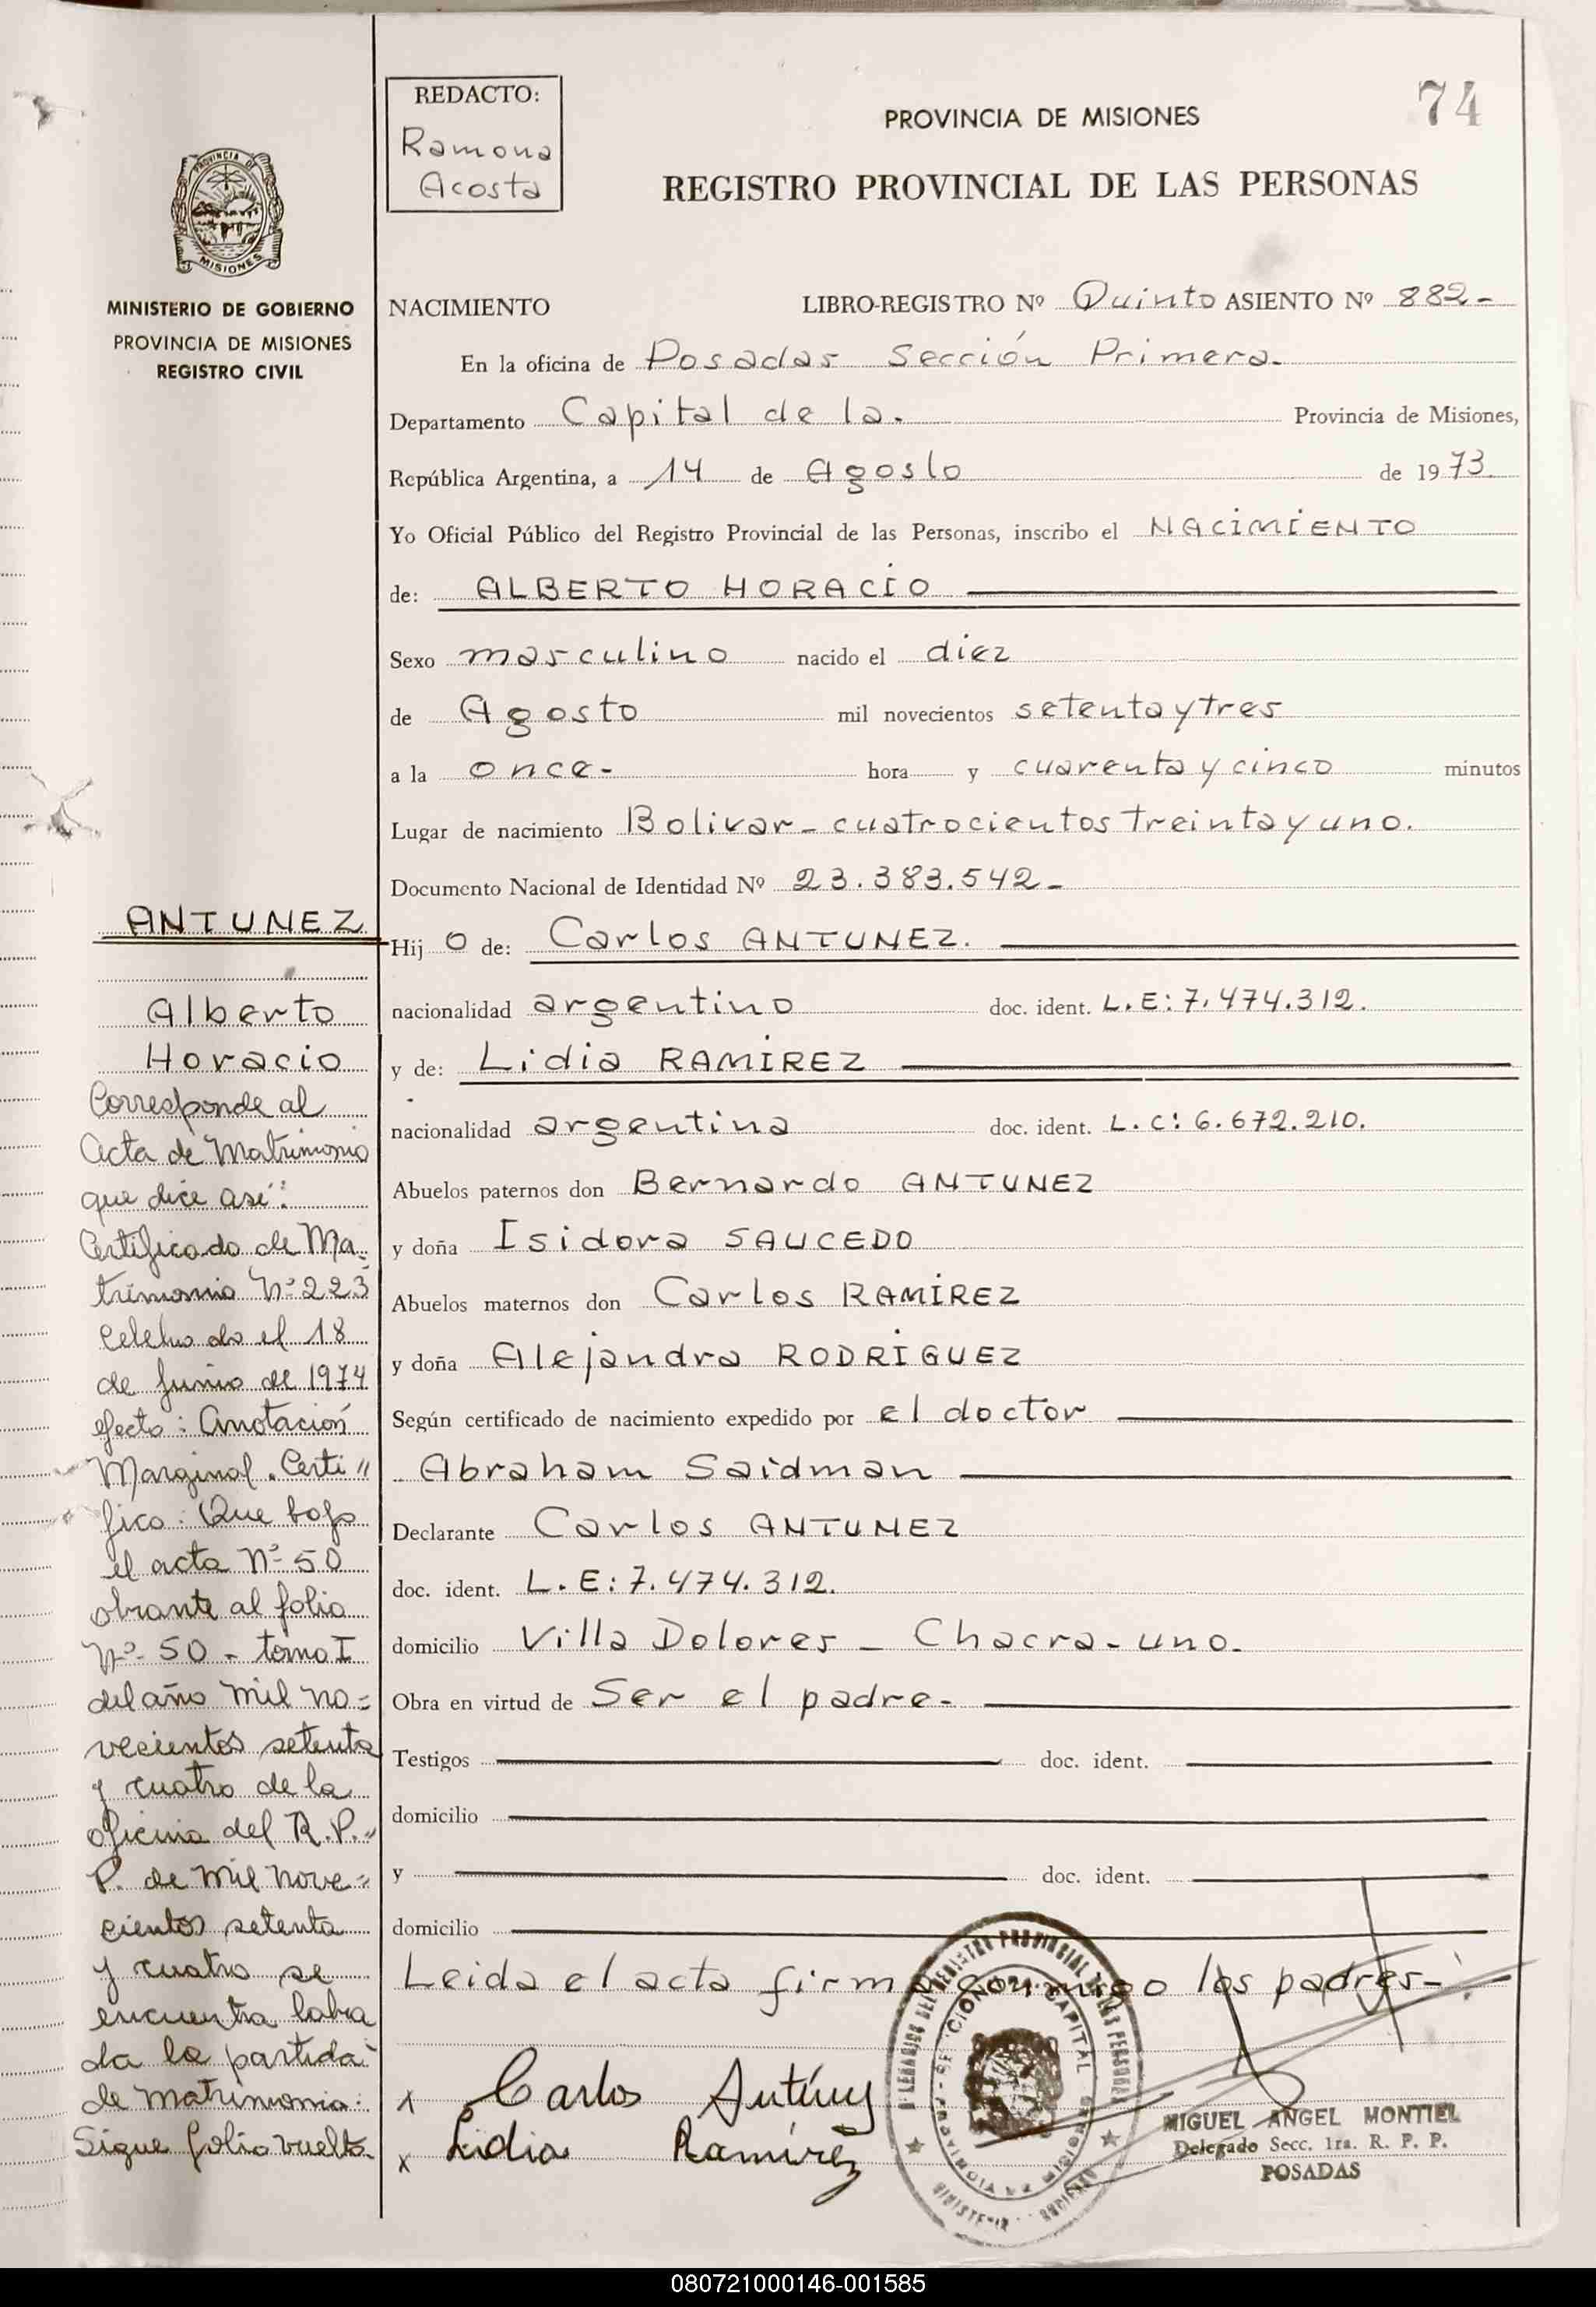 REDACTO:
Ramona
Acosta
74
PROVINCIA DE MISIONES
REGISTRO PROVINCIAL DE LAS PERSONAS
PROVINCIA DE
MISIONES
MINISTERIO DE GOBIERNO
PROVINCIA DE MISIONES
REGISTRO CIVIL
NACIMIENTO LIBRO-REGISTRO Nº Quinto ASIENTO Nº 882-
En la oficina de Posadas Sección Primera-
Departamento Capital de la. Provincia de Misiones,
República Argentina, a 14 de Agosto de 1973
Yo Oficial Público del Registro Provincial de las Personas, inscribo el NACIMIENTO
de: ALBERTO HORACIO
Sexo masculino nacido el diez
de Agosto mil novecientos setenta y tres
a la once- hora y cuarenta y cinco minutos
Lugar de nacimiento Bolivar- cuatrocientos treinta y uno.
Documento Nacional de Identidad Nº 23.383.542-
Hij o de: Carlos ANTUNEZ.
nacionalidad argentino doc. ident. L.E: 7.474.312.
y de: Lidia RAMIREZ
nacionalidad argentina doc. ident. L.C: 6.672.210.
Abuelos paternos don Bernardo ANTUNEZ
y doña Isidora SAUCEDO
Abuelos maternos don Carlos RAMIREZ
y doña Alejandra RODRIGUEZ
Según certificado de nacimiento expedido por el doctor
Abraham Saidman
Declarante Carlos ANTUNEZ
doc. ident. L.E: 7.474.312.
domicilio Villa Dolores - Chacra-uno-
Obra en virtud de Ser el padre-
Testigos doc. ident.
domicilio
y doc. ident.
domicilio
Leida el acta firman conmigo los padres-
x Carlos Antúnez
x Lidia Ramírez
MIGUEL ANGEL MONTIEL
Delegado Secc. 1ra. R. P. P.
POSADAS
ANTUNEZ
Alberto
Horacio
Corresponde al
Acta de Matrimonio
que dice así:
Certificado de Ma-
trimonio Nº 223
celebrado el 18
de Junio de 1974
efecto: Anotación
Marginal. Certi"
fico: Que bajo
el acta Nº 50
obrante al folio
Nº 50 - tomo I
del año mil no=
vecientos setenta
y cuatro de la
oficina del R.P."
P. de mil nove=
cientos setenta
y cuatro se
encuentra labra
da la partida
de matrimonio:
Sigue folio vuelto-
080721000146-001585